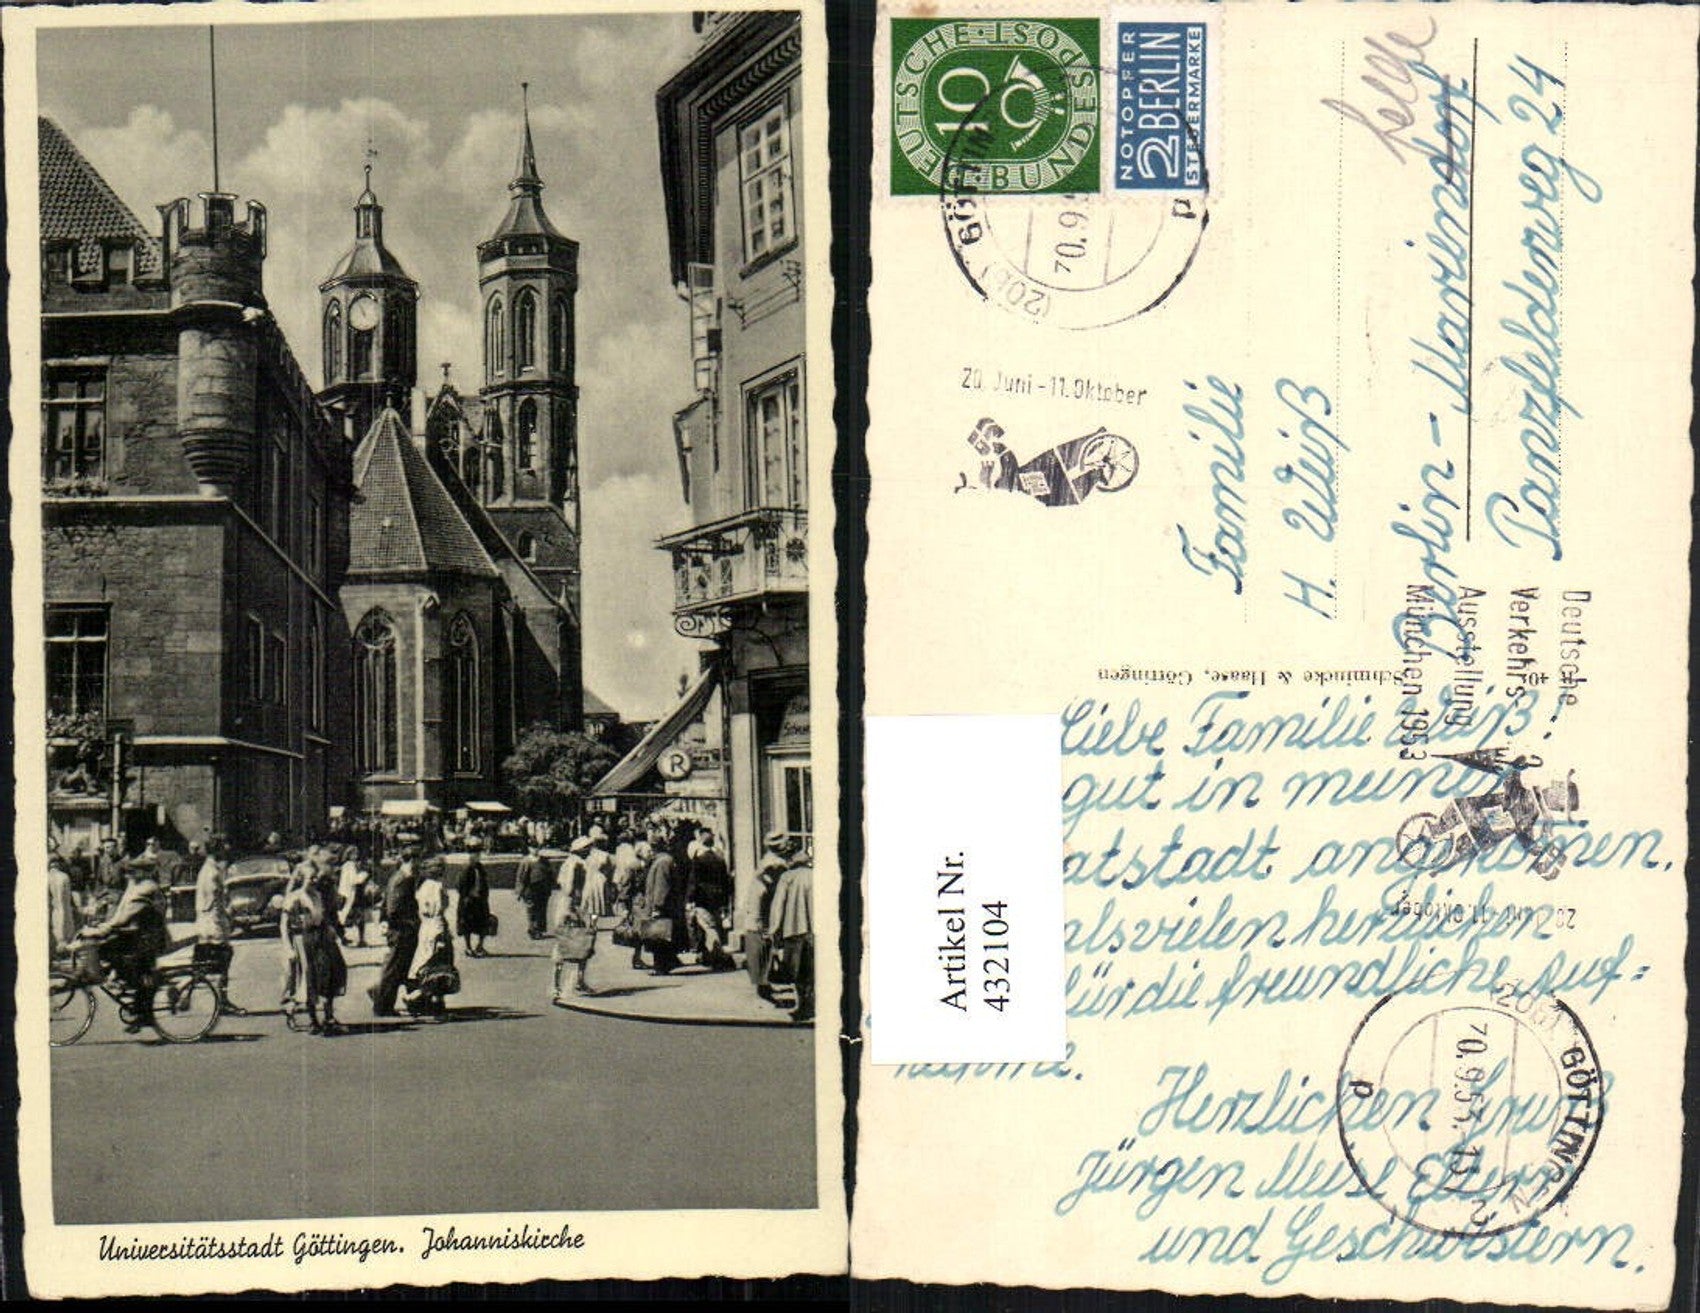 Universitätsstadt Göttingen. Johanniskirche
R
DEUTSCHE BUNDESPOST
10
NOTOPFER
2 BERLIN
STEUERMARKE
(20b) GÖTTIN
70.9.5
p
20. Juni - 11. Oktober
Familie
H. Weiß
Berlin - Mariendorf
Panzfelderweg 24
Schmincke & Haase, Göttingen
Deutsche
Verkehrs-
Ausstellung
München 1953
20. Juni - 11. Oktober
Artikel Nr.
432104
Liebe Familie Weiß!
gut in meiner
atstadt angekommen.
alsvielen herzlichen
für die freundliche Auf=
nahme.
Herzlichen Gruß
Jürgen Meise Eltern
und Geschwistern.
(20b) GÖTTINGEN
70.9.53.13
p
2